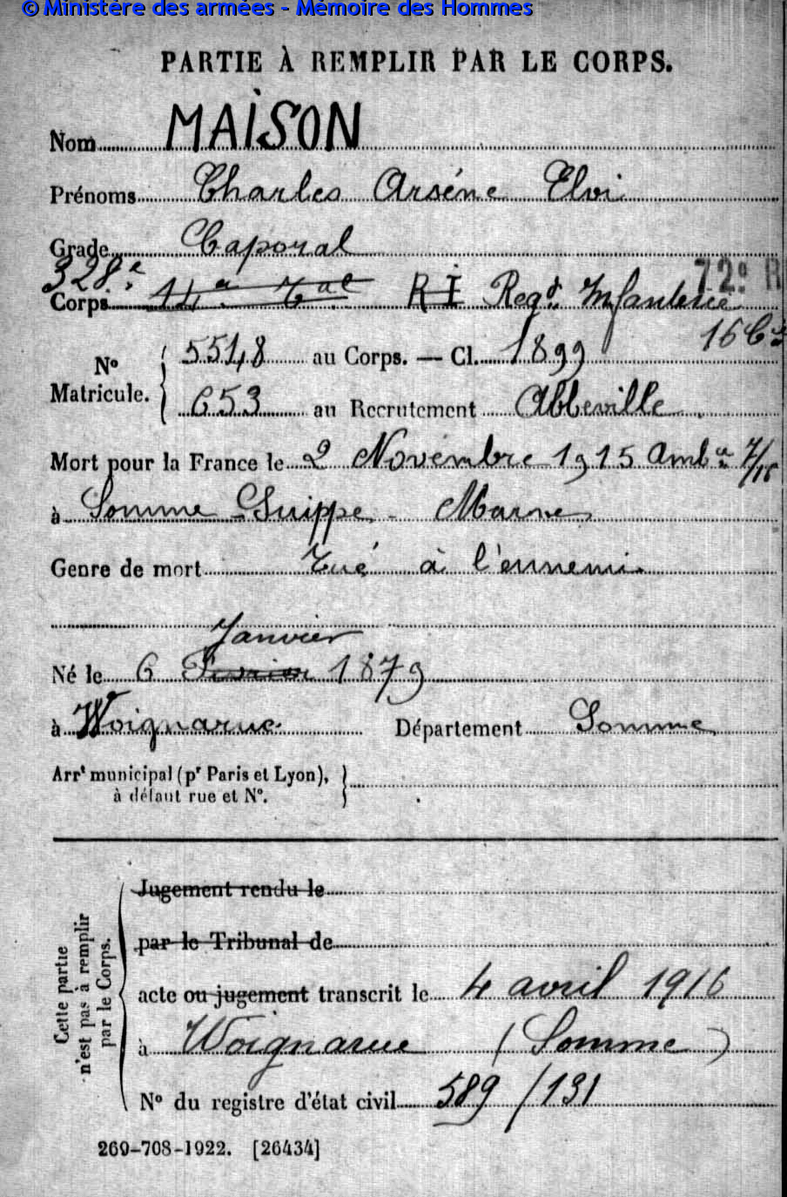 © Ministère des armées - Mémoire des Hommes
PARTIE À REMPLIR PAR LE CORPS.
Nom MAISON
Prénoms Charles Arsène Eloi
Grade Caporal
328e
Corps 14e tal RI Regt Infanterie 72e R
16 Cie
No Matricule. 5518 au Corps. — Cl. 1899
653 au Recrutement Abbeville.
Mort pour la France le 2 Novembre 1915 Ambce 7/15
à Somme-Suippe - Marne
Genre de mort Tué à l'ennemi
Janvier
Né le 6 Février 1879
à Woignarue Département Somme
Arrt municipal (pr Paris et Lyon),
à défaut rue et No.
Cette partie
n'est pas à remplir
par le Corps.
Jugement rendu le
par le Tribunal de
acte ou jugement transcrit le 4 avril 1916
à Woignarue (Somme)
No du registre d'état civil 589/131
269-708-1922. [26434]